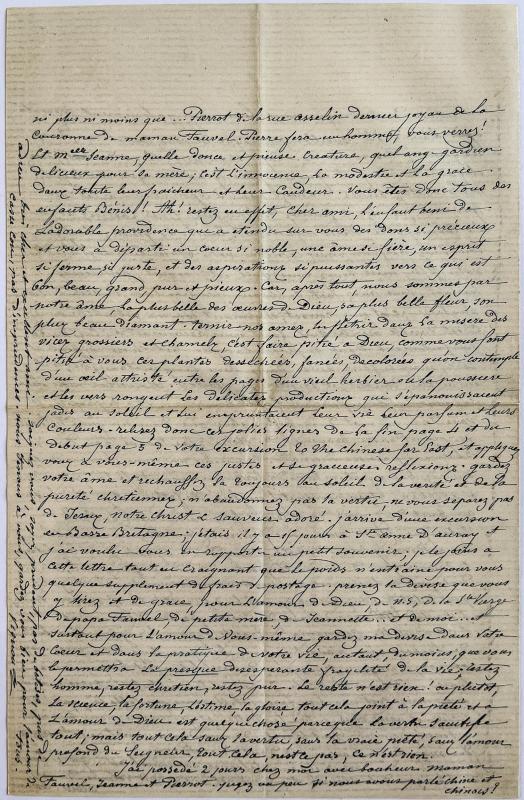 ni plus ni moins que ... Pierrot de la rue asselin dernier joyau de la
Couronne de maman Fauvel. Pierre fera un homme, vous verrez!
Et Melle Jeanne, quelle douce et pieuse Creature, quel ange gardien
delicieux pour sa mère; c'est l'innocence, la modestie et la grace
dans toute leur fraicheur et leur Candeur. Vous êtes donc tous des
enfants Bénis! Ah! restez en effet, cher ami, l'enfant beni de
L'adorable providence qui a etendu sur vous des dons si précieux
et vous a départi un coeur si noble, une âme si fière, un esprit
si ferme, si juste, et des aspirations si puissantes vers ce qui est
bon, beau, grand pur et pieux. Car, après tout nous sommes par
notre âme, la plus belle des oeuvres de Dieu, sa plus belle fleur, son
plus beau Diamant. ternir nos ames, les flétrir dans la misere des
vices grossiers et charnels, c'est faire pitié a Dieu, comme vous font
pitié à vous ces plantes dessechées, fanées, decolorées qu'on contemple
d'un oeil attristé entre les pages d'un vieil herbier où la poussiere
et les vers rongent les délicates productions qui s'épanouissaient
jadis au soleil et lui empruntaient leur vie leur parfum et leurs
Couleurs. relisez donc ces jolies lignes de la fin page 4 et du
debut page 5 de votre excursion to the chinese far East, et appliquez
vous a vous-même ces justes et si gracieuses reflexions. gardez
votre âme et rechauffez la toujours au soleil de la verité et de la
pureté chretiennes; n'abandonnez pas la vertu, ne vous separez pas
de Jesus, notre Christ & sauveur adoré. j'arrive d'une excursion
en Basse Bretagne; j'étais, il y a 15 jours à Ste anne D'auray et
j'ai voulu vous en rapporter un petit souvenir; je le joins a
cette lettre tout en craignant que le poids n'entraine pour vous
quelque supplement de frais de postage. prenez la devise que vous
y lirez et de grace, pour l'amour de Dieu, de N.S, de la Ste Vierge
de papa Fauvel, de petite mère, de Jeannette... et de moi... et
surtout pour L'amour de vous-même gardez ma devise dans votre
Coeur et dans la pratique de votre vie, autant, du moins, que vous
le permettra la presque desesperante fragilité de la vie; restez
homme, restez chretien, restez pur. Le reste n'est rien! ou plutot,
La science, la fortune, L'estime, la gloire tout cela joint à la piété et à
L'amour de Dieu est quelque chose parce que la vertu sanctifie
tout; mais tout cela sans la vertu, sans la vraie piété, sans l'amour
profond du Seigneur, tout cela, n'est ce pas, ce n'est rien.
J'ai possédé 2 jours chez moi avec bonheur maman
Fauvel, Jeanne et Pierrot. jugez un peu si nous avons parlé chine et
chinois!
Adieu bien cher et excellent ami